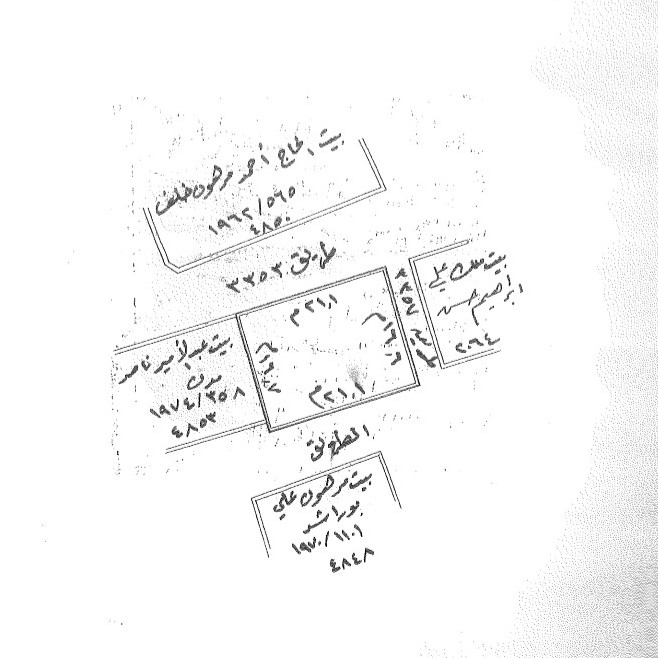 بيت الحاج أحمد مرهون خلف
١٩٦٢/٥٦٥
٤٨٥٠
طريق ٣٣٥٣
بيت ملك علي
ابراهيم حسن
٢٠٦٤
طريق ٣٣٥٧
٢١.١م
١٩.٦م
٢١.١م
بيت عبدالأمير ناصر
مدن
١٩٧٤/٣٥٨
٤٨٥٣
الطريق
بيت مرهون علي
بوراشد
١٩٧٠/١١٠١
٤٨٤٨